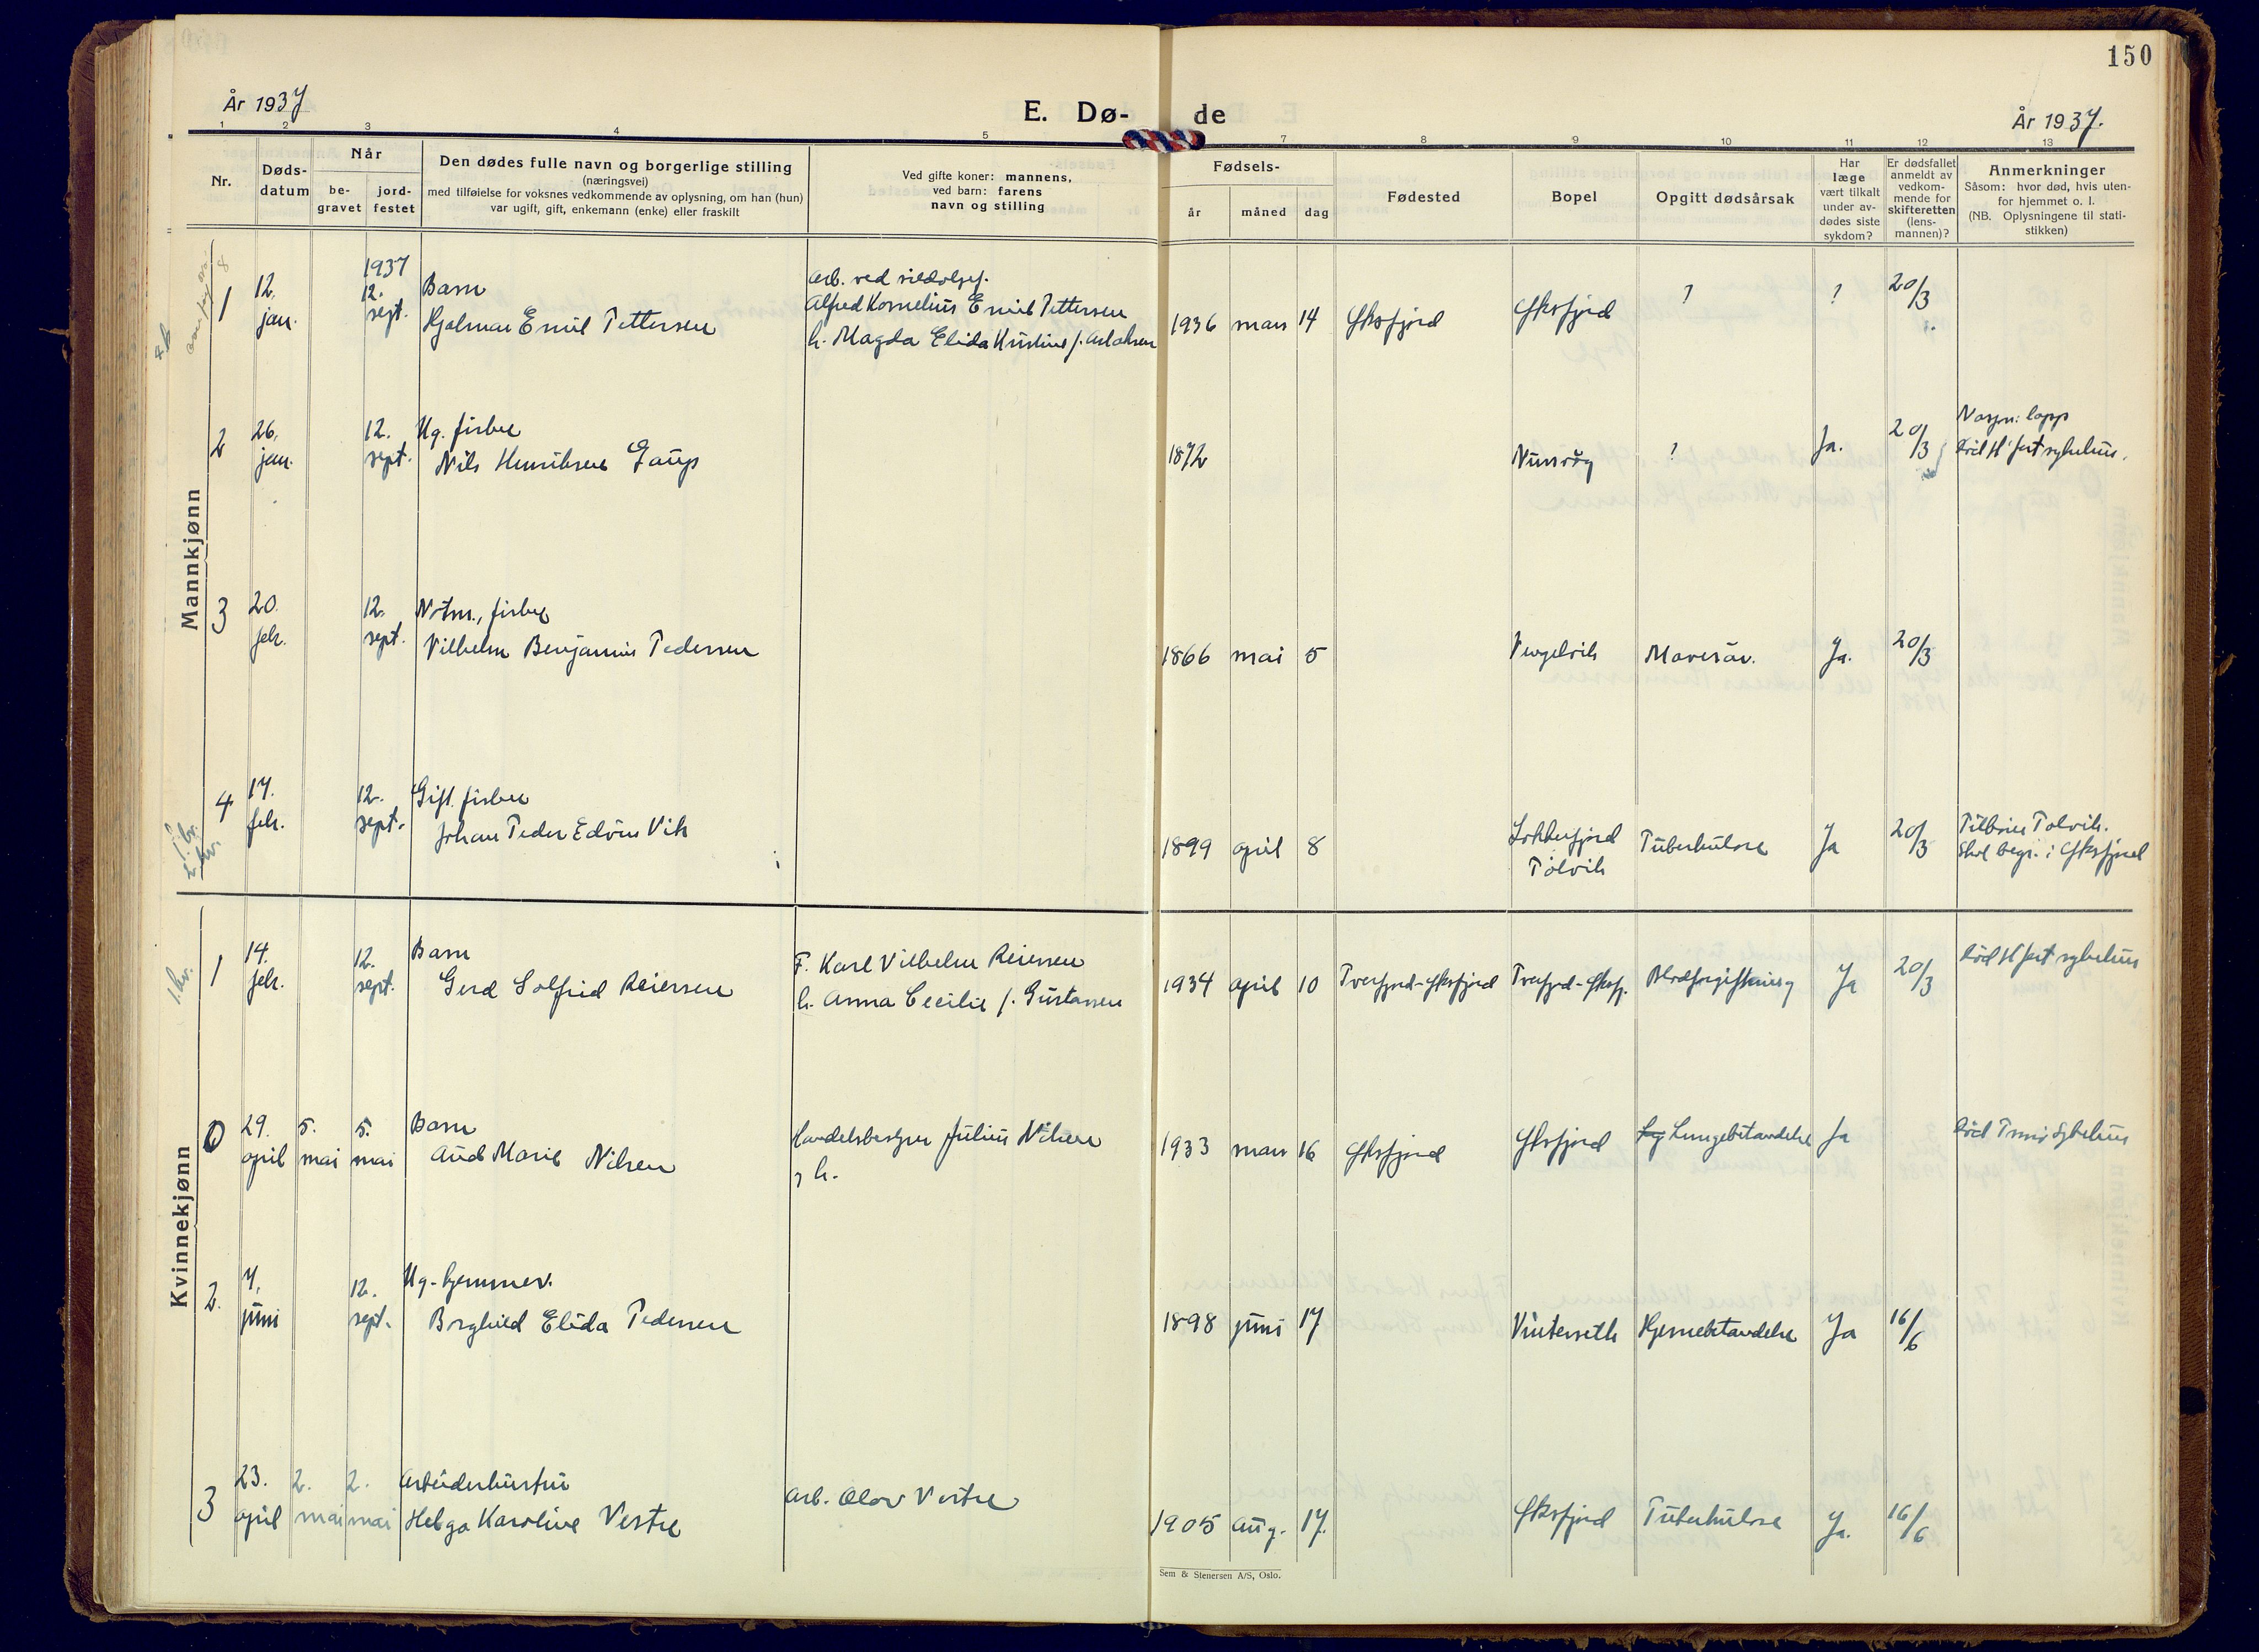 150
År 1937
E. Dø-
de
År 1937.
1 2 3 4 5 7 8 9 10 11 12 13
Nr.
Døds-
datum
Når
be-
gravet
jord-
festet
Den dødes fulle navn og borgerlige stilling
(næringsvei)
med tilføielse for voksnes vedkommende av oplysning, om han (hun)
var ugift, gift, enkemann (enke) eller fraskilt
Ved gifte koner: mannens,
ved barn: farens
navn og stilling
Fødsels-
år måned dag
Fødested
Bopel
Opgitt dødsårsak
Har
læge
vært tilkalt
under av-
dødes siste
sykdom?
Er dødsfallet
anmeldt av
vedkom-
mende for
skifteretten
(lens-
mannen)?
Anmerkninger
Såsom: hvor død, hvis uten-
for hjemmet o. l.
(NB. Oplysningene til stati-
stikken)
Mannkjønn
1
12.
jan.
1937
12.
sept.
Barn
Hjalmar Emil Pettersen
Arb. ved sildoljef.
Alfred Kornelius Emil Pettersen
h. Magda Elida Kristine f.
1936 mars 14 Øksfjord Øksfjord ? ? 20/3
2
26.
jan.
12.
sept.
Ug. fisker
Nils Henriksen Gaup
1872
Nuvsvåg ? Ja. 20/3
Nasjon: lapp
Død H.fest sykehus.
3
20.
febr.
12.
sept.
Notm., fisker
Vilhelm Benjamin Pedersen
1866 mai 5
Vengelvik Mavesår. Ja. 20/3
4
17.
febr.
12.
sept.
Gift fisker
Johan Peder Edvin Vik
1899 april 8
Lokkerfjord
Tolvik
Tuberkulose Ja 20/3
Tolvik.
Skal begr. i Øksfjord
Kvinnekjønn
1
14.
febr.
12.
sept.
Barn
Gerd Solfrid Reiersen
F. Karl Vilhelm Reiersen
h. Anna Cecilie f. Gustavsen
1934 april 10 Tverfjord-Øksfjord Tverfjord-Øksfj. Blodforgiftning Ja 20/3
Død H.fest sykehus
0
29.
april
5.
mai
5.
mai
Barn
Aud Marie Nilsen
Handelsbestyrer Julius Nilsen
h.
1933 mars 16 Øksfjord Øksfjord Lungebetendelse Ja
Død Tromsø Sykehus
2.
7.
juni
12.
sept.
Ug. hjemmev.
Borghild Elida Pedersen
1898 juni 17
Vintersett Hjernebetendelse Ja 16/6
3
23.
april
2.
mai
2.
mai
Arbeiderhustru
Helga Karoline Vestre
Arb. Olav Vestre
1905 Aug. 17.
Øksfjord Tuberkulose Ja. 16/6
Sem & Stenersen A/S, Oslo.